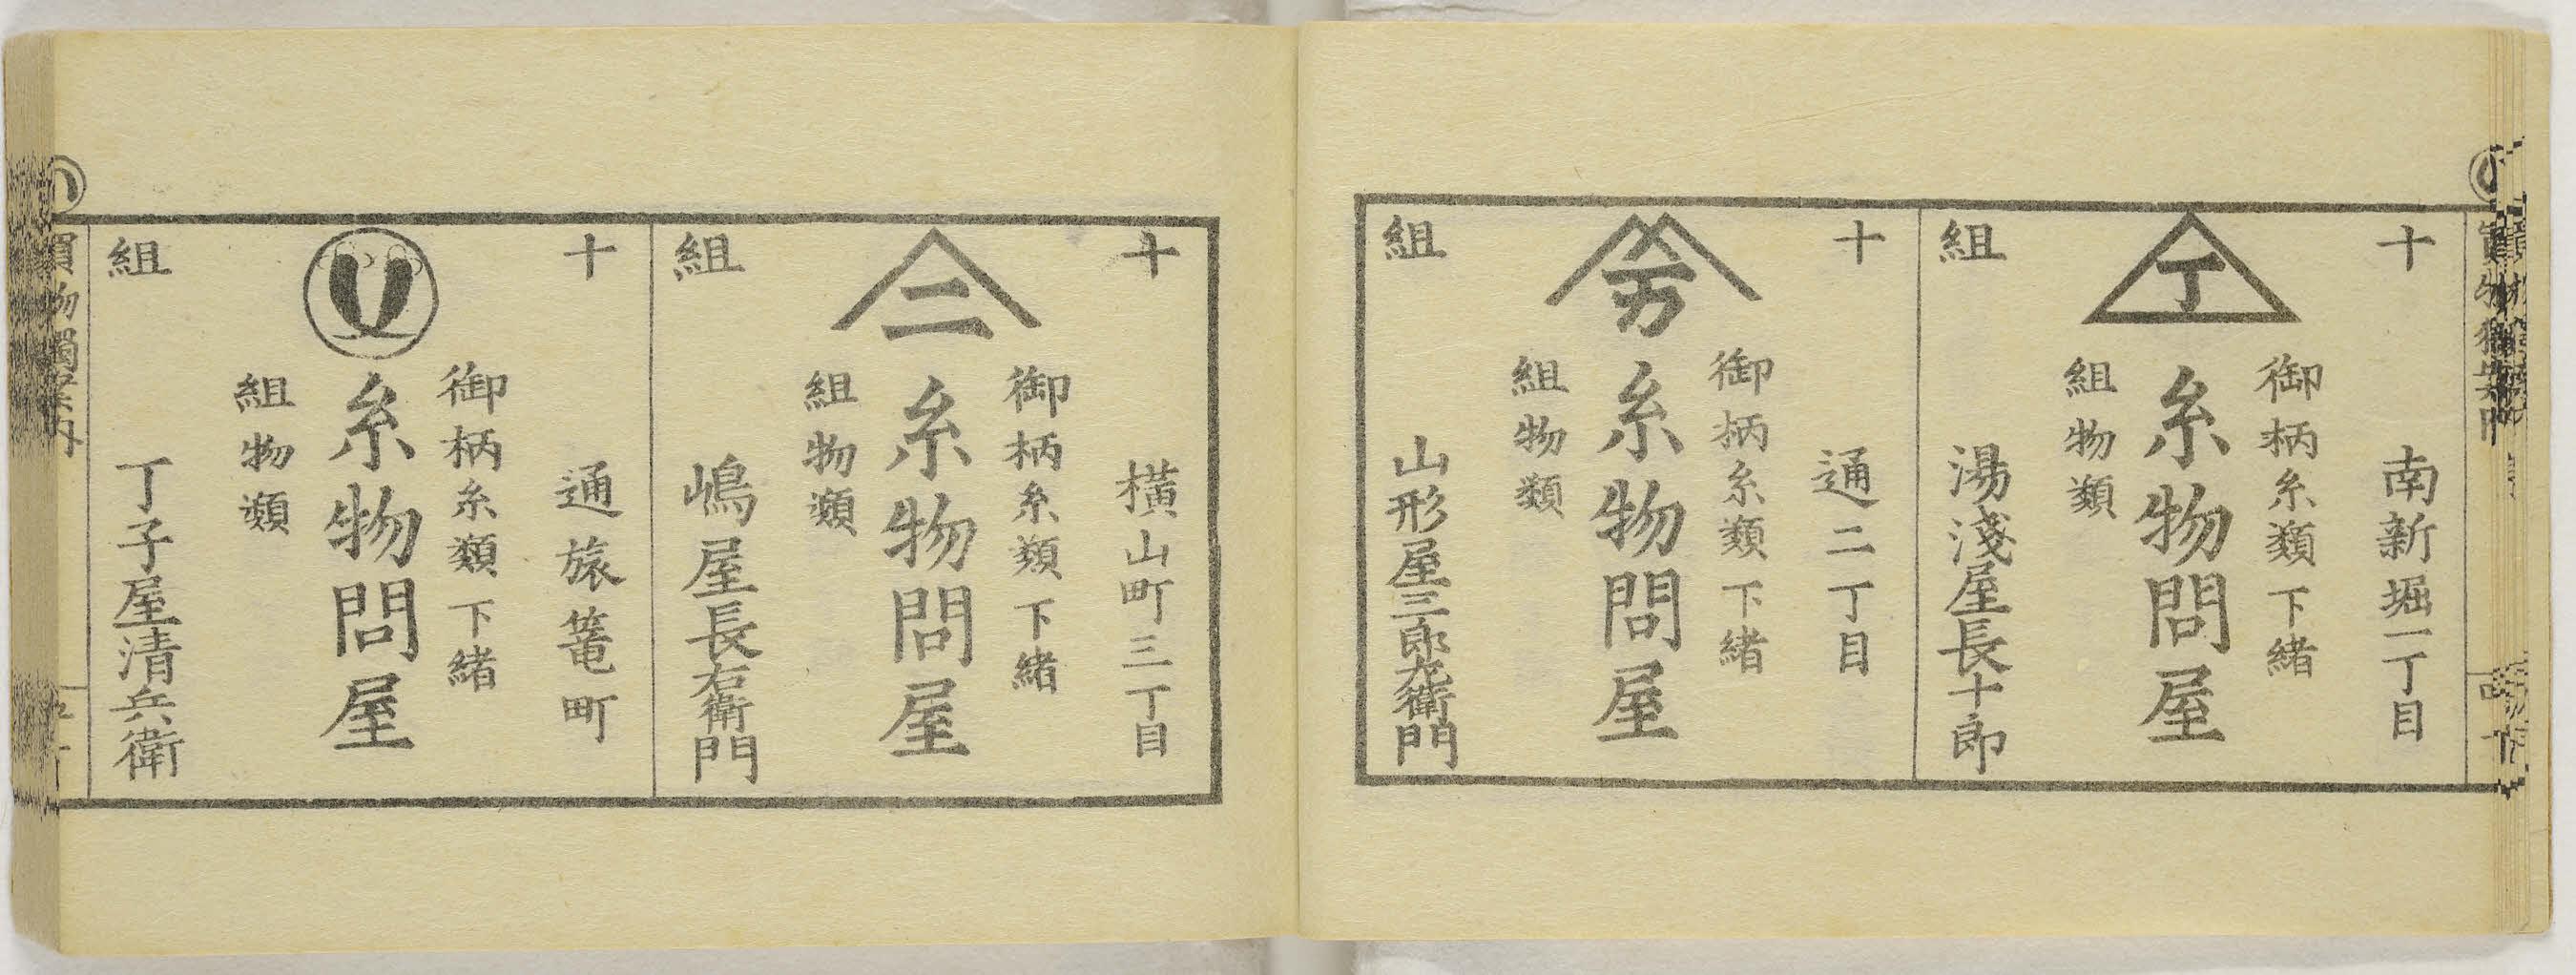 十
組
丁
南新堀一丁目
御柄糸類下緒
糸物問屋
組物類
湯淺屋長十郎
十
組
通二丁目
御柄糸類下緒
糸物問屋
組物類
山形屋三郎左衛門
十
組
二
横山町三丁目
御柄糸類下緒
糸物問屋
組物類
嶋屋長右衛門
十
組
通旅篭町
御柄糸類下緒
糸物問屋
組物類
丁子屋清兵衛
買物獨案内